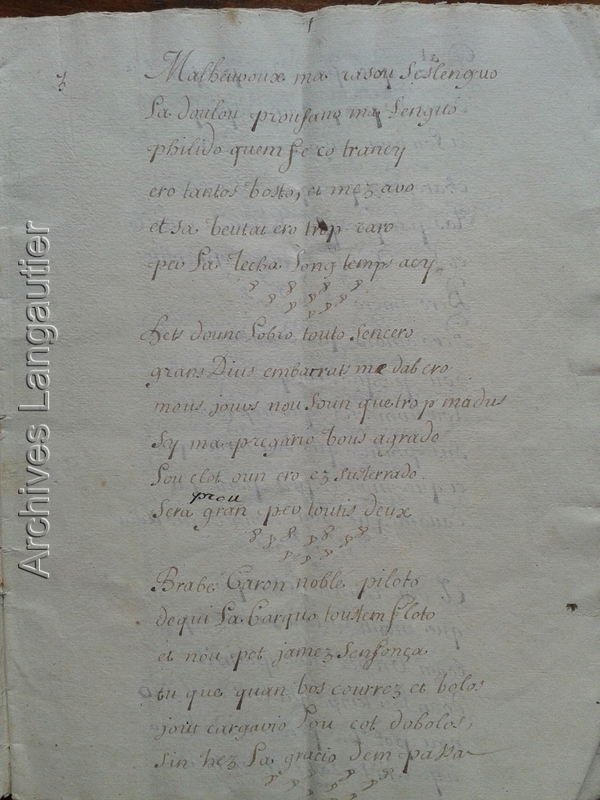 3
Malhëuroux ma rasou s'eslenguo
La doulou proufano ma Lenguo
philido quem fe co trancy
ero tantos bosto, et mez avo
et sa beutat ero trop raro
per La Lecha Long temps acy
hets dounc Lobro touto sencero
grans Dius embarrats me dab ero
mous jours nou soun que trop madus
Sy ma pregario bous agrado
Lou clot oun ero ez susterrado
prou
Sera gran per toutis deux
Brabe Caron noble piloto
de qui La barquo toustem floto
et nou pot jamez senfonça
tu que quan bos courrez et bolos
jout cargario Lou cot dobolos,
sin hez La gracio dem passa
Archives Langautier